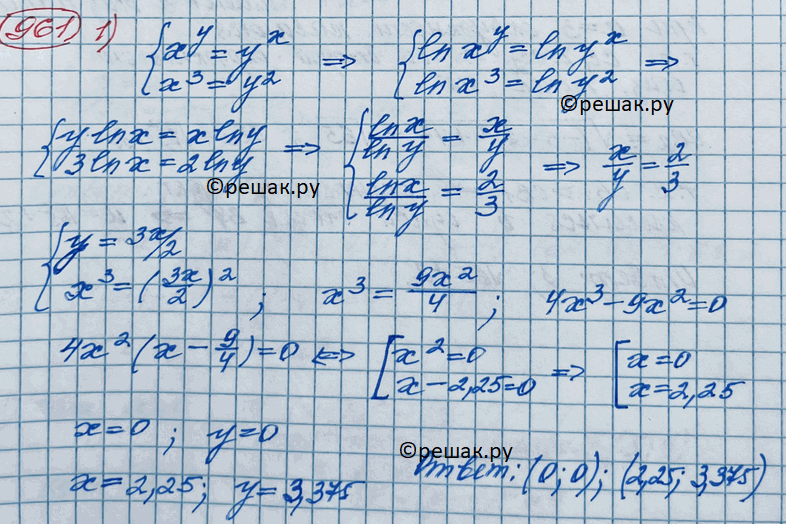 961 1) { x^y = y^x   x³ = y² => { ln x^y = ln y^x   ln x³ = ln y² =>
©решак.ру
{ y ln x = x ln y   3 ln x = 2 ln y => { ln x / ln y = x/y   ln x / ln y = 2/3 => x/y = 2/3
©решак.ру
{ y = 3x/2   x³ = (3x/2)² ; x³ = 9x²/4 ; 4x³ - 9x² = 0
4x² (x - 9/4) = 0 <=> [ x² = 0   x - 2,25 = 0 => [ x = 0   x = 2,25
x = 0 ; y = 0
©решак.ру
x = 2,25 ; y = 3,375 Ответ: (0; 0); (2,25; 3,375)